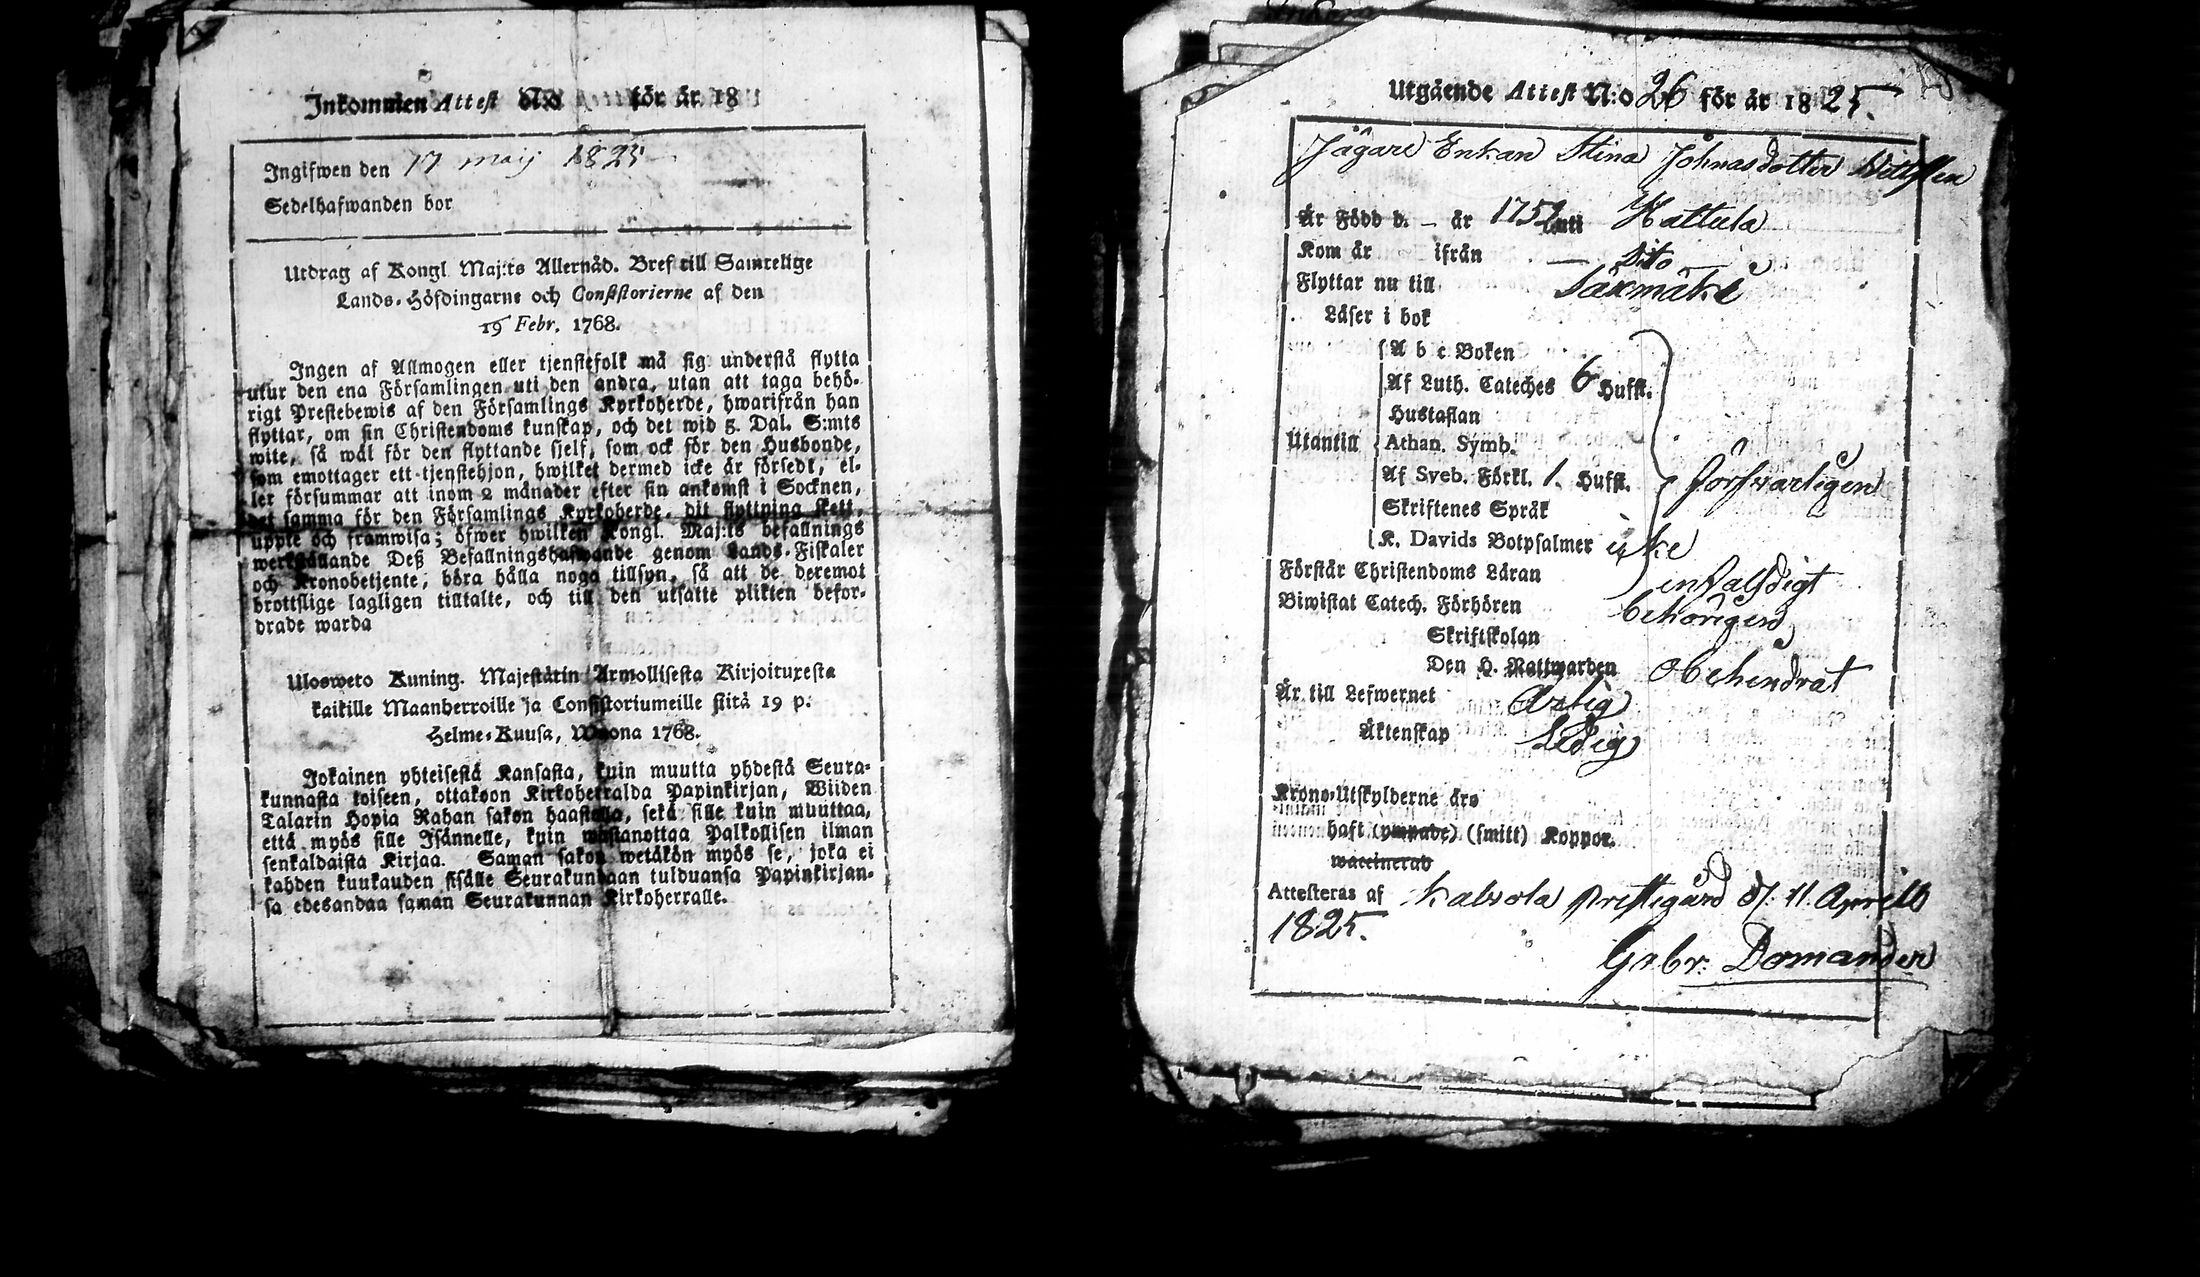 Inkommen Attest N:o för år 18
Ingifwen den 17 maij 1825
Sedelhafwanden bor
Utdrag af Kongl. Maj:ts Allernåd. Bref till Samtelige
Lands-Höfdingarne och Consistorierne af den
19 Febr. 1768.
Ingen af Allmogen eller tjenstefolk må sig understå flytta
utur den ena Församlingen uti den andra, utan att taga behö-
rigt Prestebewis af den Församlings Kyrkoherde, hwarifrån han
flyttar, om sin Christendoms kunskap, och det wid 5. Dal. S:mts
wite, så wäl för den flyttande sjelf, som ock för den Husbonde,
som emottager ett tjenstehjon, hwilket dermed icke är försedt, el-
ler försummar att inom 2 månader efter sin ankomst i Socknen,
det samma för den Församlings Kyrkoherde, dit flyttning skett,
uppte och framwisa; öfwer hwilken Kongl. Maj:ts befallnings
werkställande Deß Befallningshafwande genom Lands-Fiskaler
och Kronobetjente, böra hålla noga tillsyn, så att de deremot
brottslige lagligen tilltalte, och till den utsatte plikten befor-
drade warda
Ulosweto Kuning. Majestätin Armollisesta Kirjoituxesta
kaikille Maanherroille ja Consistoriumeille siitä 19 p:
Helme-Kuusa, Wuona 1768.
Jokainen yhteisestä Kansasta, kuin muutta yhdestä Seura-
kunnasta toiseen, ottakoon Kirkoherralda Papinkirjan, Wiiden
Talarin Hopia Rahan sakon haastolla, sekä sille kuin muuttaa,
että myös sille Isännelle, kuin wastanottaa Palkollisen ilman
senkaldaista Kirjaa. Saman sakon wetäkön myös se, joka ei
kahden kuukauden sisälle Seurakundaan tulduansa Papinkirjan-
sa edesandaa saman Seurakunnan Kirkoherralle.
Utgående Attest N:o 26 för år 1825.
Jägare Enkan Stina Johnasdotter
Är Född d. – år 1759 uti Hattula
Kom år ifrån — dito
Flyttar nu till Säxmäki
Läser i bok
A b c Boken
Af Luth. Cateches 6 Hufst.
Hustaflan
Utantill Athan. Symb.
Af Sveb. Förkl. 1. Hufst. försvarligen
Skriftenes Språk
K. Davids Botpsalmer icke
Förstår Christendoms Läran enfaldigt
Biwistat Catech. Förhören behörigen
Skriftskolan
Den H. Nattwarden obehindrat
Är till Lefwernet Ärlig
Äktenskap Ledig
Krono-Utskylderne äro
haft (ympade) (smitt) Koppor.
waccinerad
Attesteras af Kalvola Prestegård d. 11. Aprill
1825.
Gabr. Domander